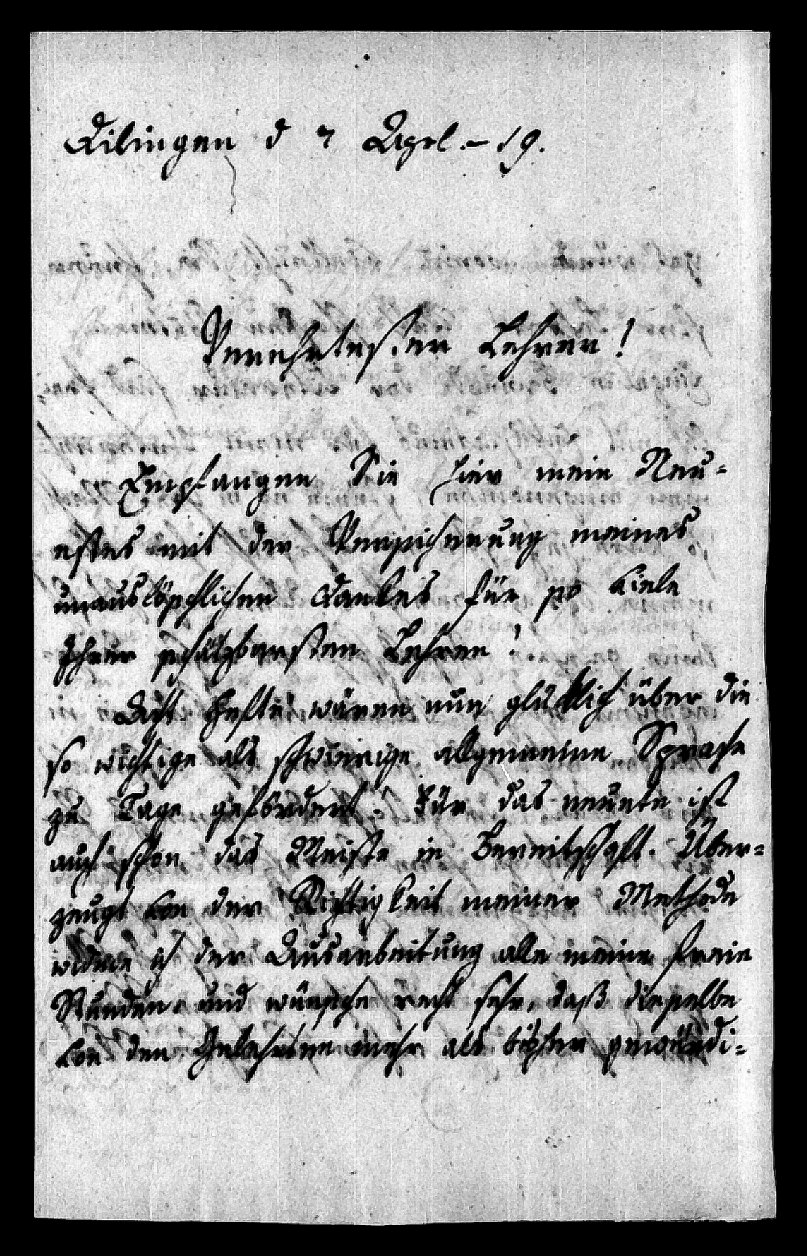 Dilingen d 7 Aprl. – 19.
Verehrtester Lehrer!
Empfangen Sie hier mein Neu-
estes mit der Versicherung meines
unauslöschlichen Dankes für so viele
Ihrer schätzbarsten Lehren!
Acht Hefte wären nun glücklich über die
so wichtige als schwirige allgemeine Sprache
zu Tage gefördert. Für das neunte ist
auch schon das Meiste in Bereitschaft. Über-
zeugt von der Richtigkeit meiner Methode
widme ich der Ausarbeitung alle meine freie
Stunden und wünsche recht sehr, daß dieselbe
von den Gelehrten mehr als bisher gewürdi-